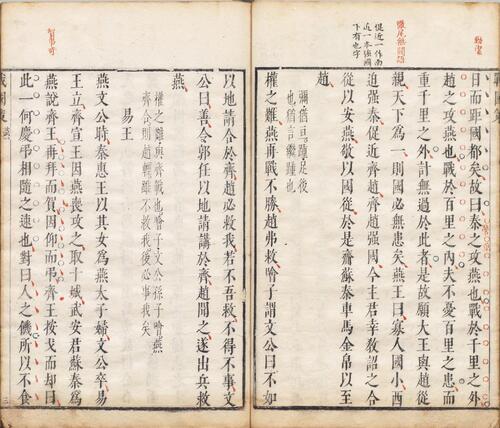 促近一作南
近一本強國
下有也字
日而距國都矣故曰秦之攻燕也戰於千里之外
趙之攻燕也戰於百里之內夫不憂百里之患而
重千里之外計無過於此者是故願大王與趙從
親天下為一則國必無患矣燕王曰寡人國小西
迫強秦促近齊趙齊趙強國今主君幸教詔之合
從以安燕敬以國從於是齎蘇秦車馬金帛以至
趙
權之難燕再戰不勝趙弗救噲子謂文公曰不如
以地請合於齊趙必救我若不吾救不得不事文
公曰善令郭任以地請講於齊趙聞之遂出兵救
燕
權之難與齊戰也噲子文公孫子噲燕
齊合則趙輕雖不救我後必事我矣
易王
燕文公時秦惠王以其女為燕太子婦文公卒易
王立齊宣王因燕喪攻之取十城武安君蘇秦為
燕說齊王再拜而賀因仰而弔齊王按戈而却曰
此一何慶弔相隨之速也對曰人之饑所以不食